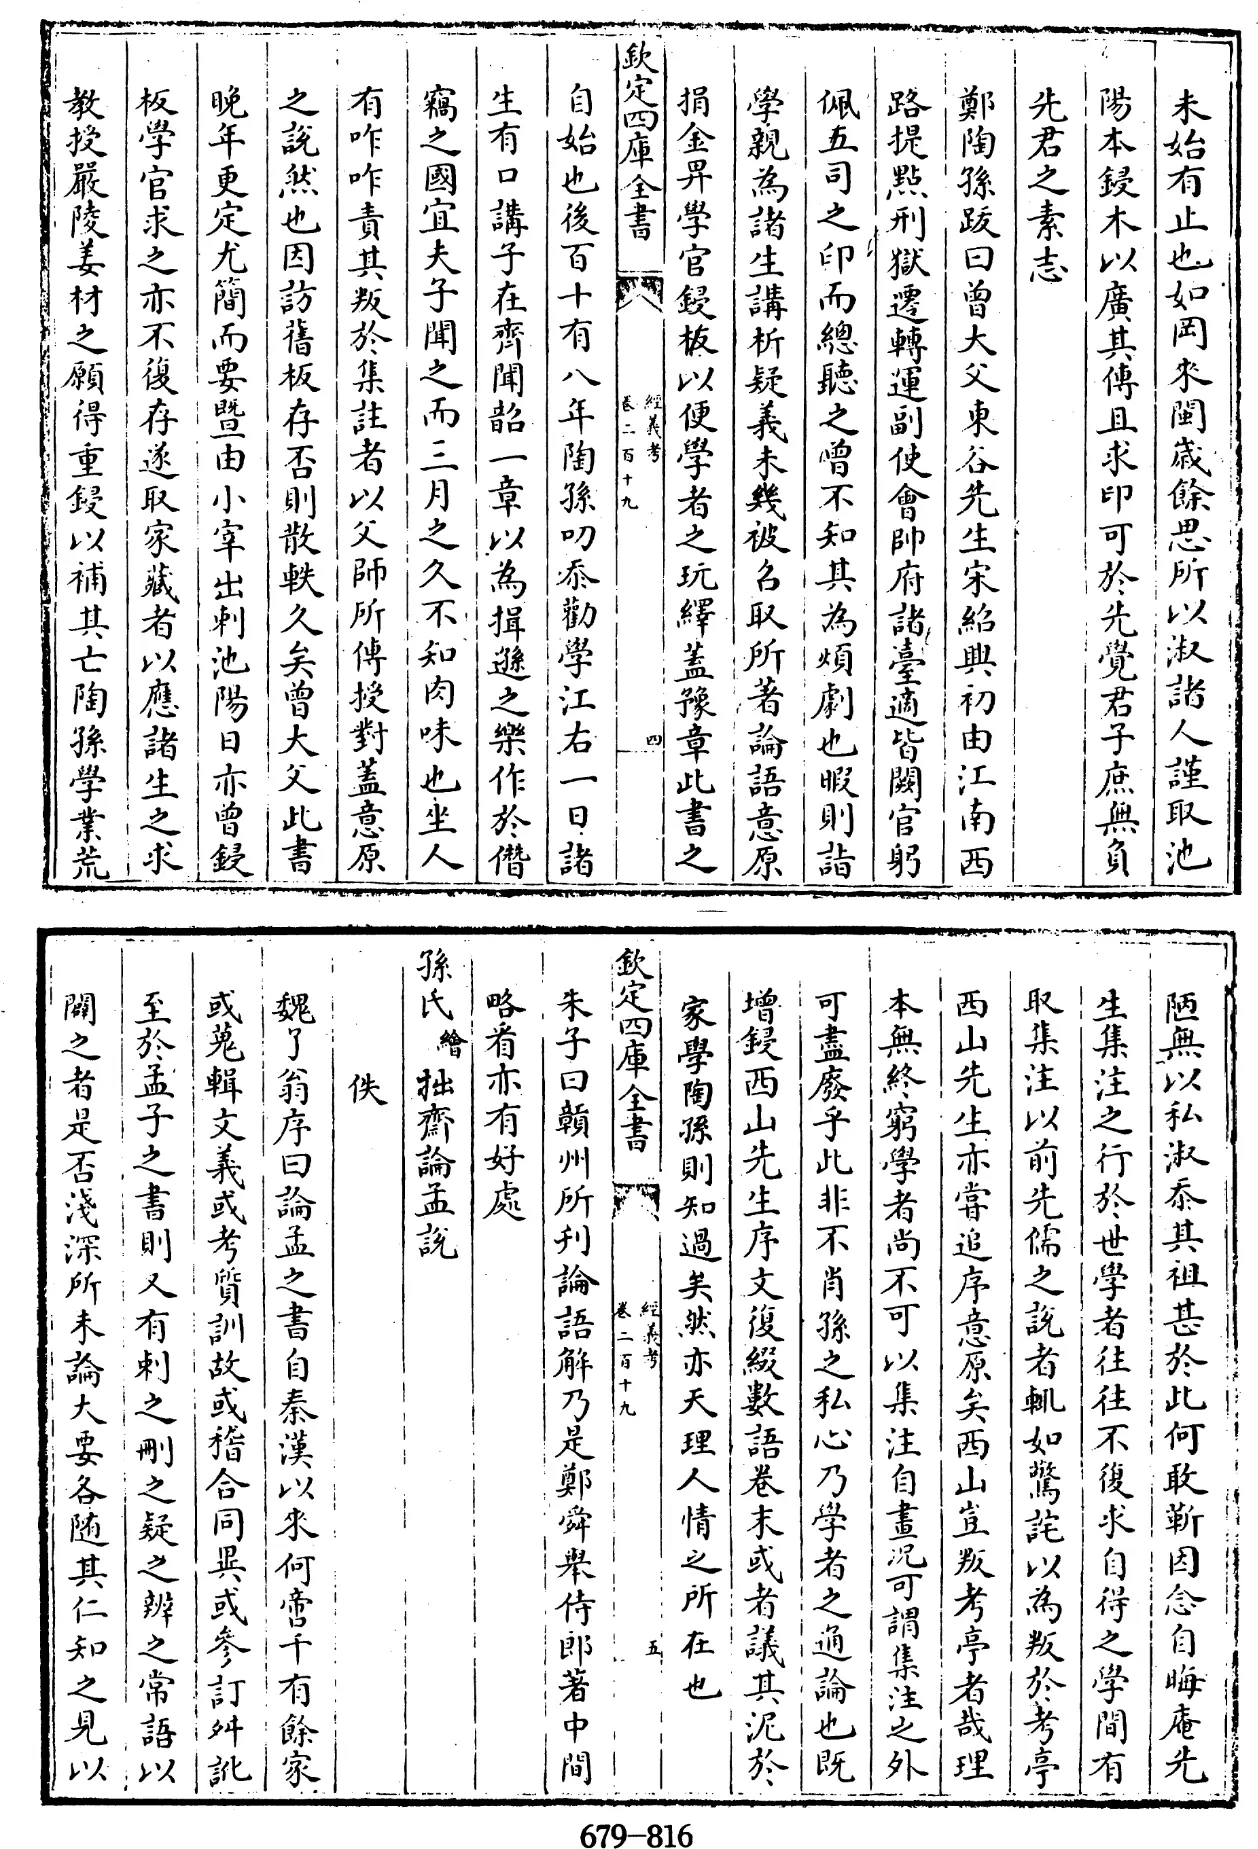 未始有止也如岡來閩嵗餘思所以淑諸人謹取池
陽本鋟木以廣其傳且求印可於先覺君子庶無負
先君之素志
鄭陶孫跋曰曾大父東谷先生宋紹興初由江南西
路提點刑獄遷轉運副使會帥府諸臺適皆闕官躬
佩五司之印而總聽之曽不知其為煩劇也暇則詣
學親為諸生講析疑義未幾被召取所著論語意原
捐金畀學官鋟板以便學者之玩繹蓋豫章此書之
欽定四庫全書
經義考
卷二百十九
四
自始也後百十有八年陶孫叨忝勸學江右一日諸
生有口講子在齊聞韶一章以為揖遜之樂作於僭
竊之國宜夫子聞之而三月之久不知肉味也坐人
有咋咋責其叛於集註者以父師所傳授對蓋意原
之說然也因訪舊板存否則散軼久矣曾大父此書
晚年更定尤簡而要暨由小宰出刺池陽日亦曾鋟
板學官求之亦不復存遂取家藏者以應諸生之求
教授嚴陵姜材之願得重鋟以補其亡陶孫學業荒
陋無以私淑忝其祖甚於此何敢靳因念自晦庵先
生集注之行於世學者往往不復求自得之學間有
取集注以前先儒之說者輒如驚詫以為叛於考亭
西山先生亦嘗追序意原矣西山豈叛考亭者哉理
本無終窮學者尚不可以集注自畫況可謂集注之外
可盡廢乎此非不肖孫之私心乃學者之通論也既
增鋟西山先生序文復綴數語卷末或者議其泥於
家學陶孫則知過矣然亦天理人情之所在也
欽定四庫全書
經義考
卷二百十九
五
朱子曰贑州所刋論語解乃是鄭舜舉侍郎著中間
略看亦有好處
孫氏繪拙齋論孟說
佚
魏了翁序曰論孟之書自秦漢以來何啻千有餘家
或蒐輯文義或考質訓故或稽合同異或參訂舛訛
至於孟子之書則又有刺之刪之疑之辨之常語以
闢之者是否淺深所未論大要各隨其仁知之見以
679-816